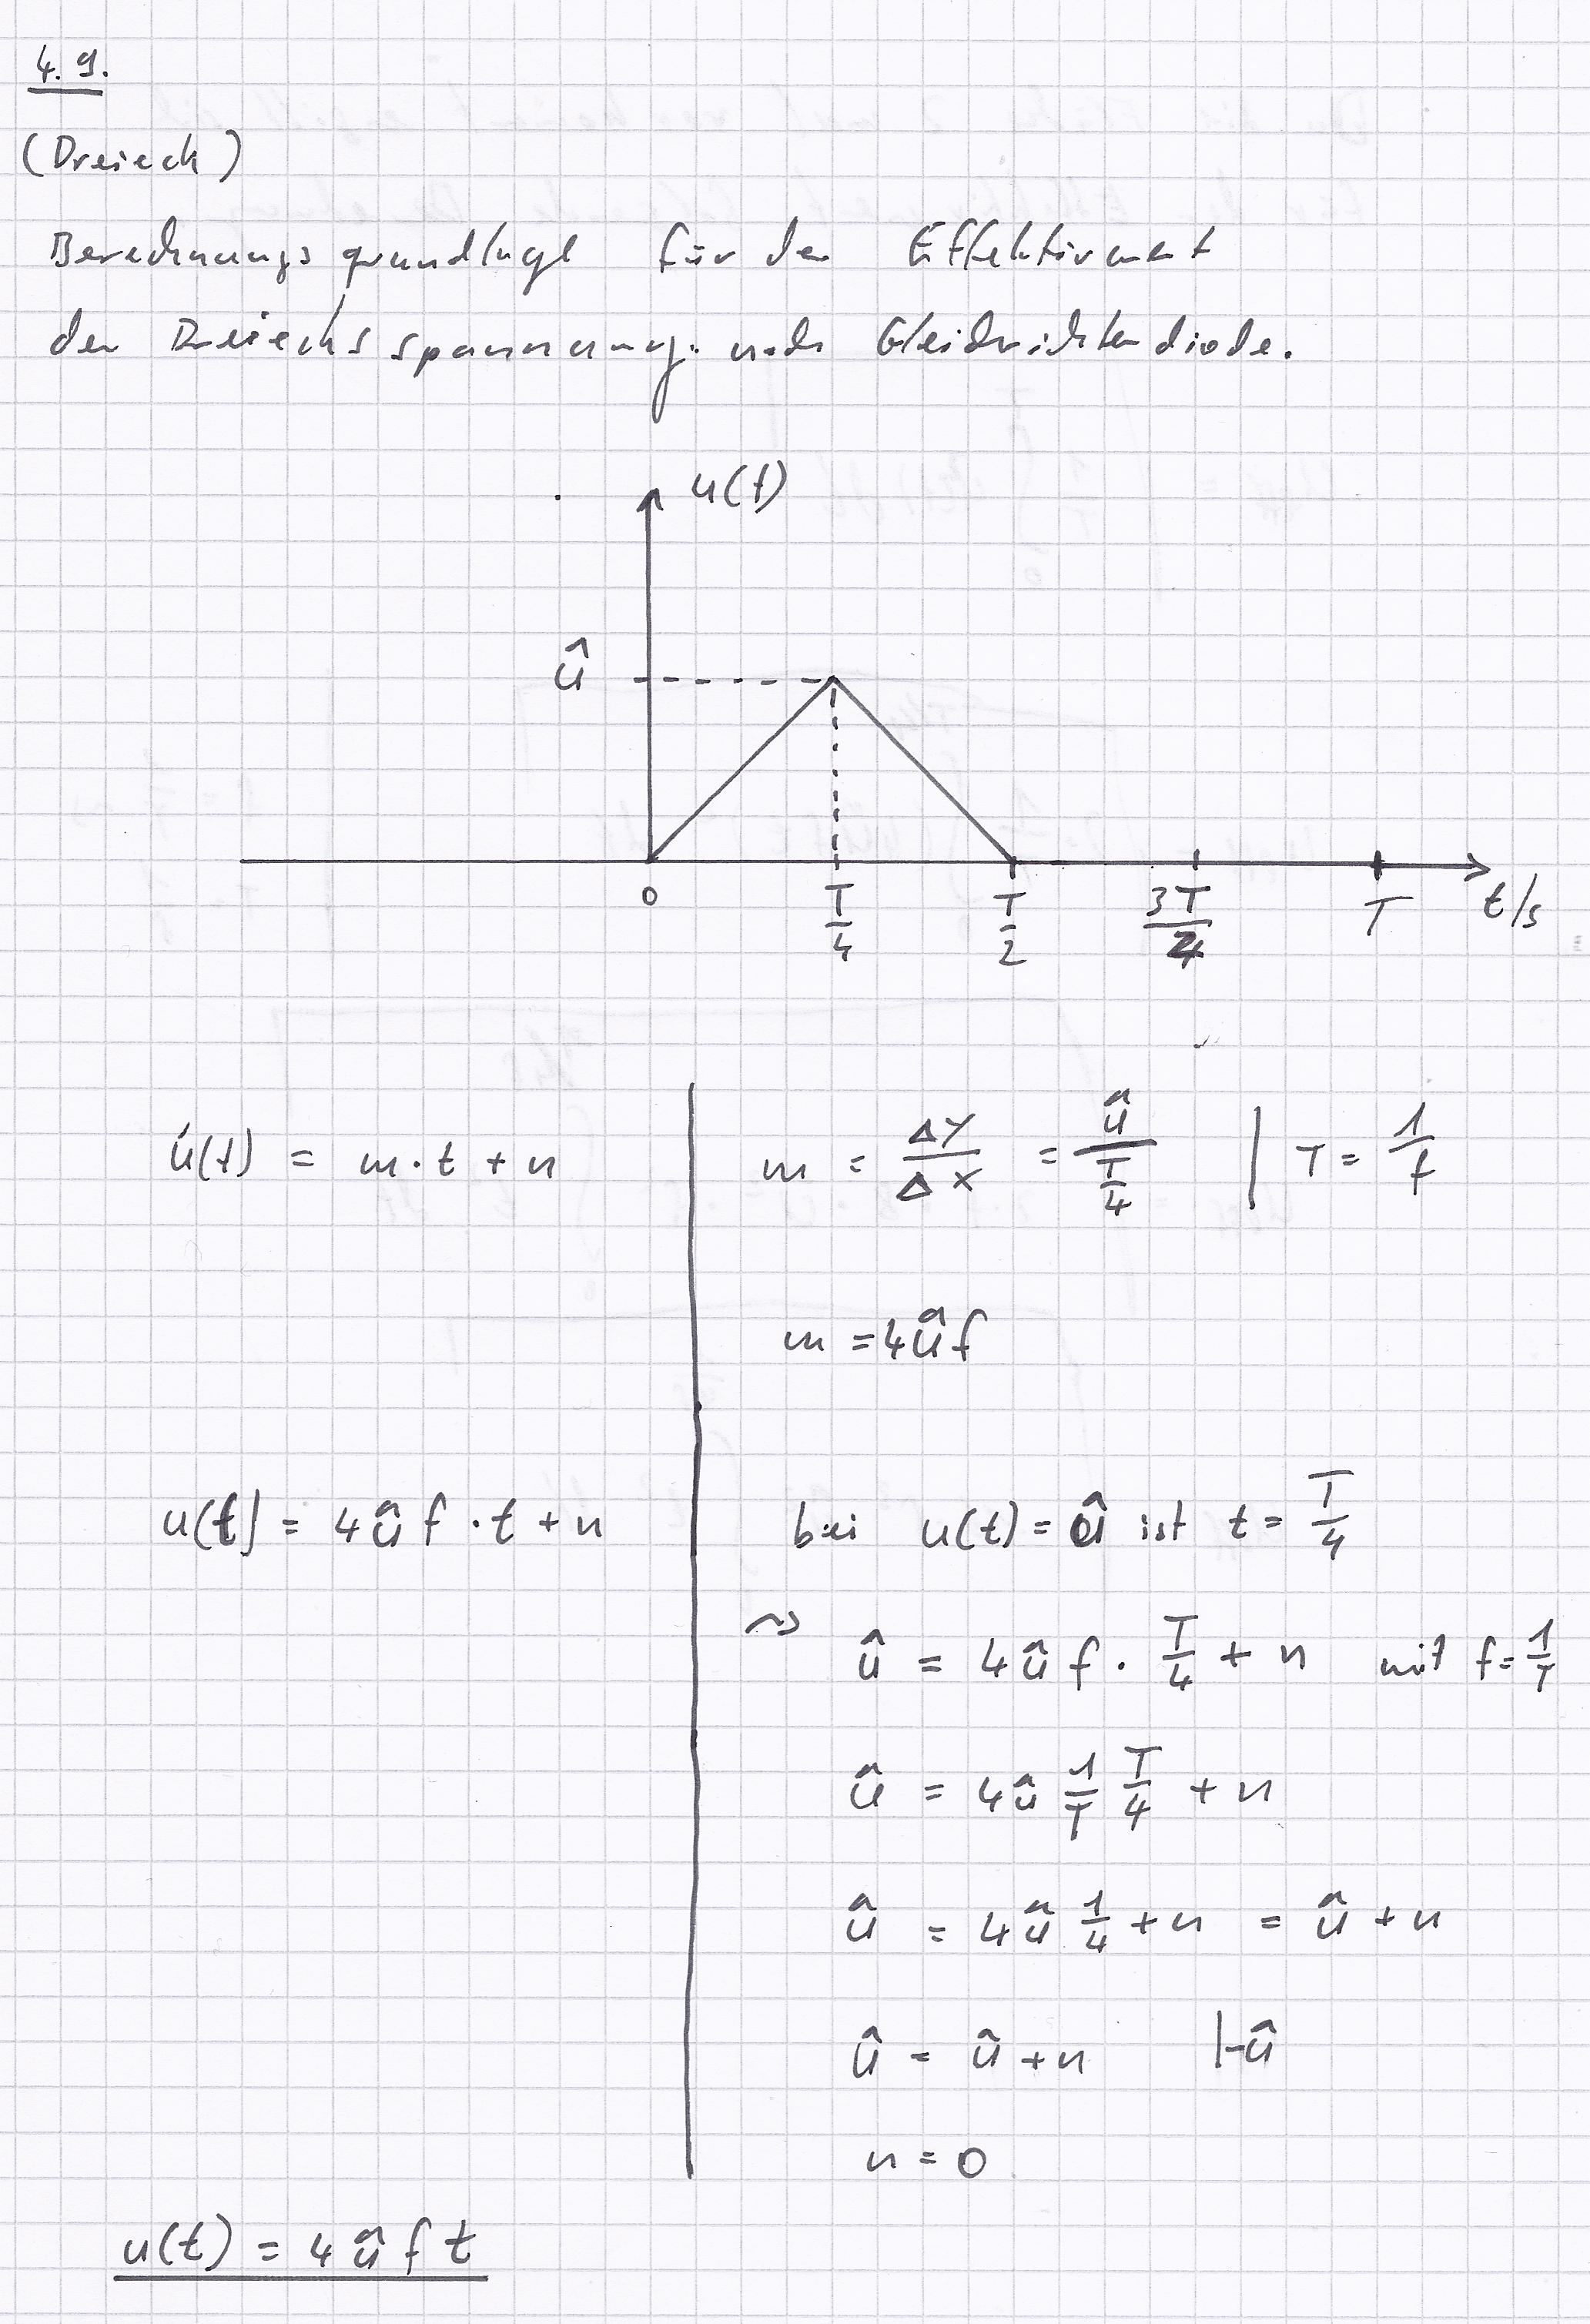 4.9.
(Dreieck)
Berechnungsgrundlage für den Effektivwert
der Dreiecksspannung nach Gleichrichterdiode.
u(t)
û
0 T/4 T/2 3T/4 T t/s
u(t) = m·t + n
m = ΔY/ΔX = û/(T/4) | T = 1/f
m = 4ûf
u(t) = 4ûf·t + n
bei u(t) = û ist t = T/4
~> û = 4ûf · T/4 + n mit f = 1/T
û = 4û 1/T T/4 + n
û = 4û 1/4 + n = û + n
û = û + n |-û
n = 0
u(t) = 4ûft